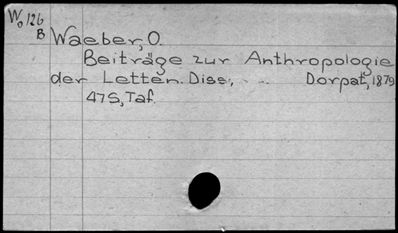 Wo 126
B
Waeber, O.
Beiträge zur Anthropologie
der Letten. Diss., . . . Dorpat, 1879
47S, Taf.